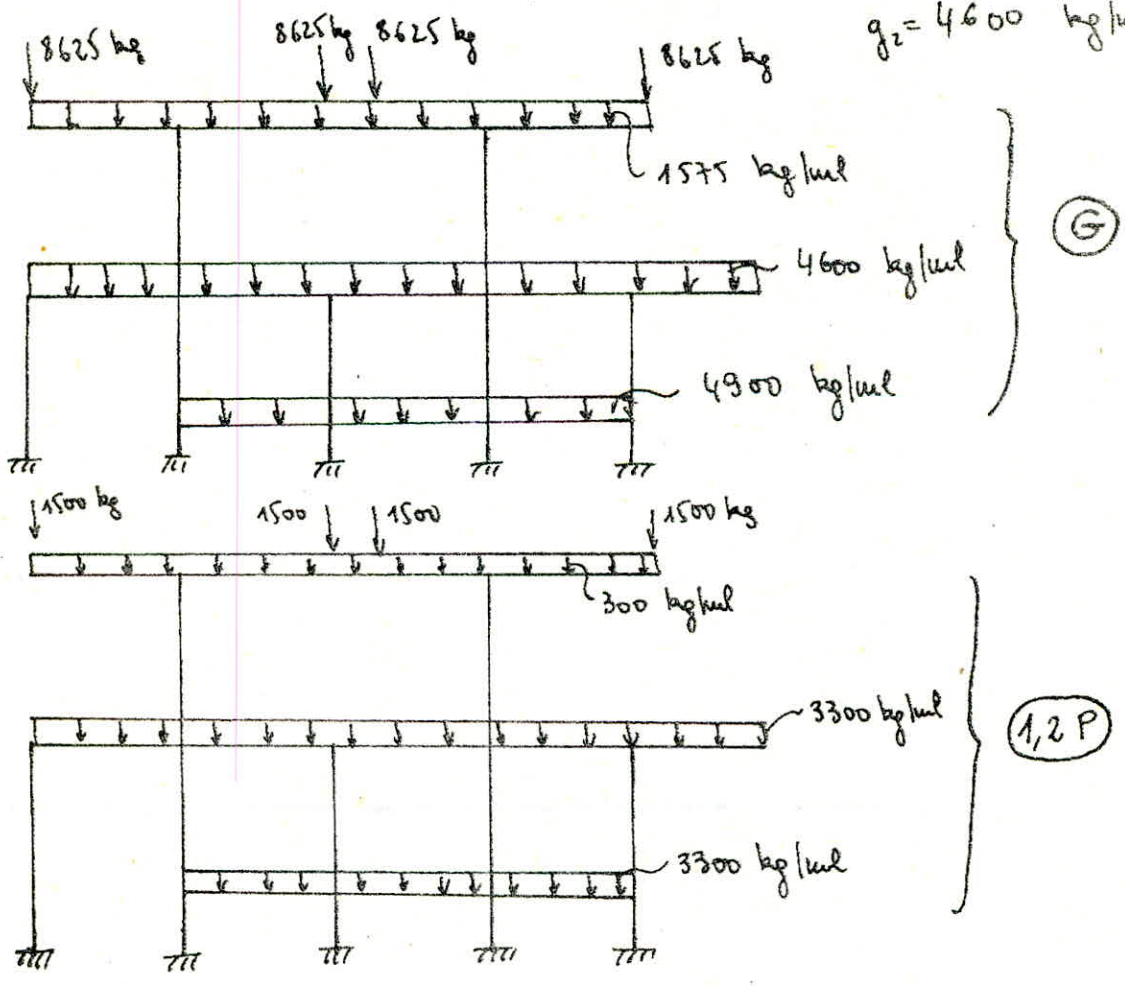 g₂= 4600 kg/
8625 kg 8625kg 8625 kg 8625 kg
1575 kg/ml
G
4600 kg/ml
4900 kg/ml
1500 kg 1500 1500 1500 kg
300 kg/ml
3300 kg/ml
1,2 P
3300 kg/ml